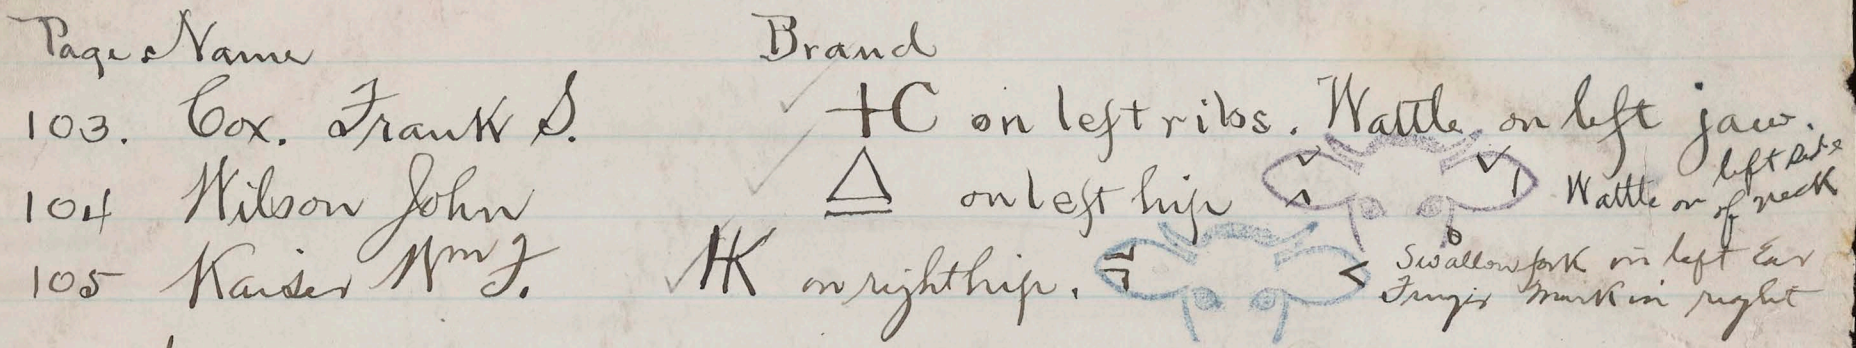 Page Name Brand
103. Cox. Frank S. +C on left ribs. Wattle on left jaw.
104 Wilson John △ on left hip Wattle on left side of neck
105 Kaiser Wm F. HK on right hip. Swallowfork in left Ear
Finger mark in right